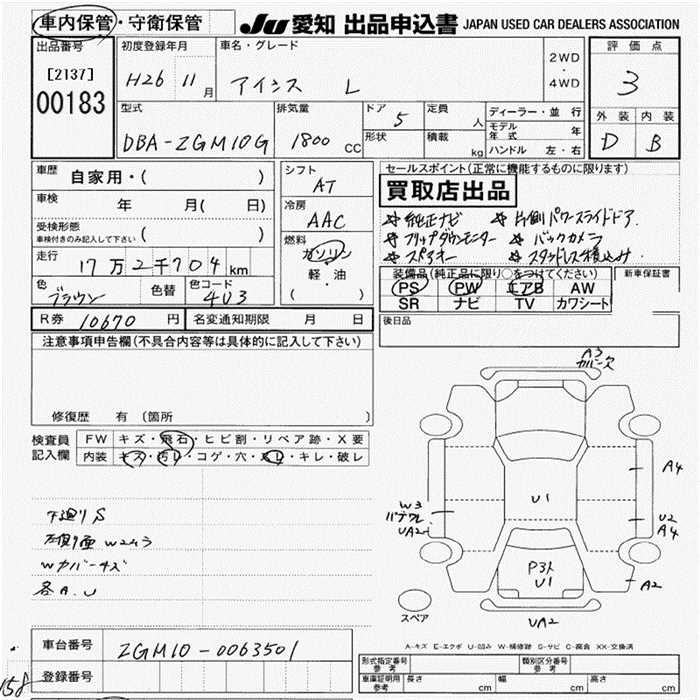 車内保管・守衛保管
JU 愛知 出品申込書 JAPAN USED CAR DEALERS ASSOCIATION
出品番号 初度登録年月 車名・グレード 評価点
[2137] H26 11月 アイシス L 2WD・4WD 3
00183
外装 内装
D B
型式 排気量 ドア 定員 人 ディーラー・並行
DBA-ZGM10G 1800 CC 5 モデル年式 年
形状 積載 kg ハンドル 左・右
車歴 自家用・( )
シフト AT
セールスポイント(正常に機能するものに限ります)
買取店出品
車検 年 月( 日)
冷房 AAC
☆純正ナビ ☆片側パワースライドドア
☆フリップダウンモニター ☆バックカメラ
☆スペアキー ☆スタッドレス積込み
受検形態 ( )
車検付きのみ記入して下さい
燃料 ガソリン
軽・油
( ・ )
走行 17万2千704km
装備品(純正品に限り○をつけてください) 新車保証書
PS PW エアB AW
SR ナビ TV カワシート
色 ブラウン 色替 色コード 4U3
R券 10670 円 名変通知期限 月 日
後日品
注意事項申告欄(不具合内容等は具体的に記入して下さい)
修復歴 有 (箇所
検査員記入欄
FW キズ・飛石・ヒビ割・リペア跡・X要
内装 キズ・汚レ・コゲ・穴・スレ・キレ・破レ
下廻りS
Wカバーキズ
各A.U
A3
カバー欠
A4
U1
W3
UA2
U2
A4
P3ト
U1
A2
スペア
UA2
A-キズ E-エクボ U-凹み W-補修跡 S-サビ C-腐食 XX-交換済
車台番号 ZGM10-0063501
登録番号
158
形式指定番号 参考 類別区分番号 参考
車庫証明用 参考 長さ cm 幅 cm 高さ cm